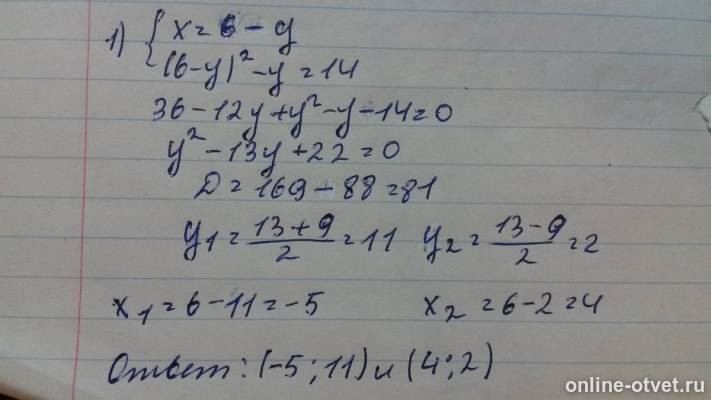 1) { x = 6 - y
(6-y)² - y = 14
36 - 12y + y² - y - 14 = 0
y² - 13y + 22 = 0
D = 169 - 88 = 81
y₁ = (13+9)/2 = 11 y₂ = (13-9)/2 = 2
x₁ = 6 - 11 = -5 x₂ = 6 - 2 = 4
Ответ: (-5; 11) и (4; 2)
online-otvet.ru